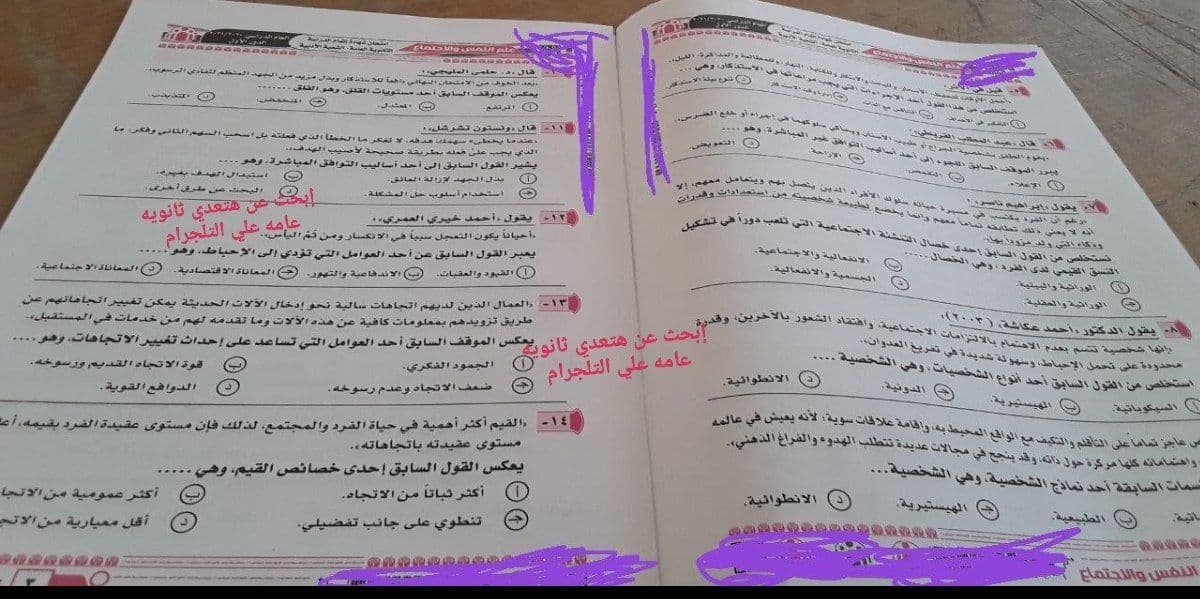 علم النفس والاجتماع
امتحان شهادة إتمام الدراسة
الثانوية العامة - الشعبة الأدبية
العام الدراسي ٢٠٢١/٢٠٢٠
الدور الأول
استخلص من هذا القول أحد الإجراءات التي يجب مراعاتها في الاستذكار، وهي ...
٦- قال عبد المطلب القريطي:
يبرر الموقف السابق اللجوء إلى أحد أساليب التوافق غير المباشرة، وهو ....
أ الإعلاء. ب التقمص.
ج الإزاحة. د التعويض.
٧- يقول إبراهيم ناصر:
«رغم أن الفرد يكتسب في مسيرة حياته سلوك الأفراد الذين يتصل بهم ويتعامل معهم، إلا
أنه لا يعني ذلك تطابقه تماماً معهم وإنما يخضع لطبيعة شخصيته من استعدادات وقدرات
وذكاء التي ولد مزوداً بها».
نستخلص من القول السابق إحدى خصال التنشئة الاجتماعية التي تلعب دوراً في تشكيل
النسق القيمي لدى الفرد، وهي الخصال .....
أ الوراثية والبيئية. ب الانفعالية والاجتماعية.
ج الوراثية والعقلية. د الجسمية والانفعالية.
٨- يقول الدكتور «أحمد عكاشة» (٢٠٠٣):
«إنها شخصية تتسم بعدم الاهتمام بالالتزامات الاجتماعية، وافتقاد الشعور بالآخرين، وقدرة
محدودة على تحمل الإحباط، وسهولة شديدة في تفريغ العدوان».
استخلص من القول السابق أحد أنواع الشخصيات، وهي الشخصية ....
أ السيكوباتية. ب الهيستيرية. ج الدونية. د الانطوائية.
عاجز تماماً على التأقلم والتكيف مع الواقع المحيط به، وإقامة علاقات سوية؛ لأنه يعيش في عالمه
واهتماماته كلها مركزة حول ذاته، وقد ينجح في مجالات عديدة تتطلب الهدوء والفراغ الذهني».
السمات السابقة أحد نماذج الشخصية، وهي الشخصية...
ب الطبيعية. ج الهيستيرية. د الانطوائية.
النفس والاجتماع
علم النفس والاجتماع
امتحان شهادة إتمام الدراسة
الثانوية العامة - الشعبة الأدبية
العام الدراسي ٢٠٢١/٢٠٢٠
الدور الأول
قال «د. حلمى المليجي»:
«يعد الخوف من الامتحان النهائي دافعاً للاستذكار وبذل مزيد من الجهد المنظم لتفادي الرسوب».
يعكس الموقف السابق أحد مستويات القلق، وهو القلق .......
أ المرتفع. ب المعتدل. ج المنخفض. د المتذبذب.
١١- قال «ونستون تشرشل»:
«عندما يخطىء سهمك هدفه، لا تفكر ما الخطأ الذي فعلته بل اسحب السهم الثاني وفكر، ما
الذي يجب علىّ فعله بطريقة صحيحة لأصيب الهدف».
يشير القول السابق إلى أحد أساليب التوافق المباشرة، وهو ....
أ بذل الجهد لإزالة العائق. ب استبدال الهدف بغيره.
ج استخدام أسلوب حل المشكلة. د البحث عن طرق أخرى.
١٢- يقول «أحمد خيري العمري»:
«أحياناً يكون التعجل سبباً في الانكسار ومن ثمَّ اليأس».
يعبر القول السابق عن أحد العوامل التي تؤدي إلى الإحباط، وهو.....
أ القيود والعقبات. ب الاندفاعية والتهور. ج المعاناة الاقتصادية. د المعاناة الاجتماعية.
١٣- «العمال الذين لديهم اتجاهات سالبة نحو إدخال الآلات الحديثة يمكن تغيير اتجاهاتهم عن
طريق تزويدهم بمعلومات كافية عن هذه الآلات وما تقدمه لهم من خدمات في المستقبل».
يعكس الموقف السابق أحد العوامل التي تساعد على إحداث تغيير الاتجاهات، وهو ....
أ الجمود الفكري. ب قوة الاتجاه القديم ورسوخه.
ج ضعف الاتجاه وعدم رسوخه. د الدوافع القوية.
١٤- «القيم أكثر أهمية في حياة الفرد والمجتمع، لذلك فإن مستوى عقيدة الفرد بقيمه، أعلى
مستوى عقيدته باتجاهاته».
يعكس القول السابق إحدى خصائص القيم، وهي .....
أ أكثر ثباتاً من الاتجاه. ب أكثر عمومية من الاتجا
ج تنطوي على جانب تفضيلي. د أقل معيارية من الاتج
٣
إبحث عن هتعدي ثانويه
عامه علي التلجرام
إبحث عن هتعدي ثانويه
عامه علي التلجرام